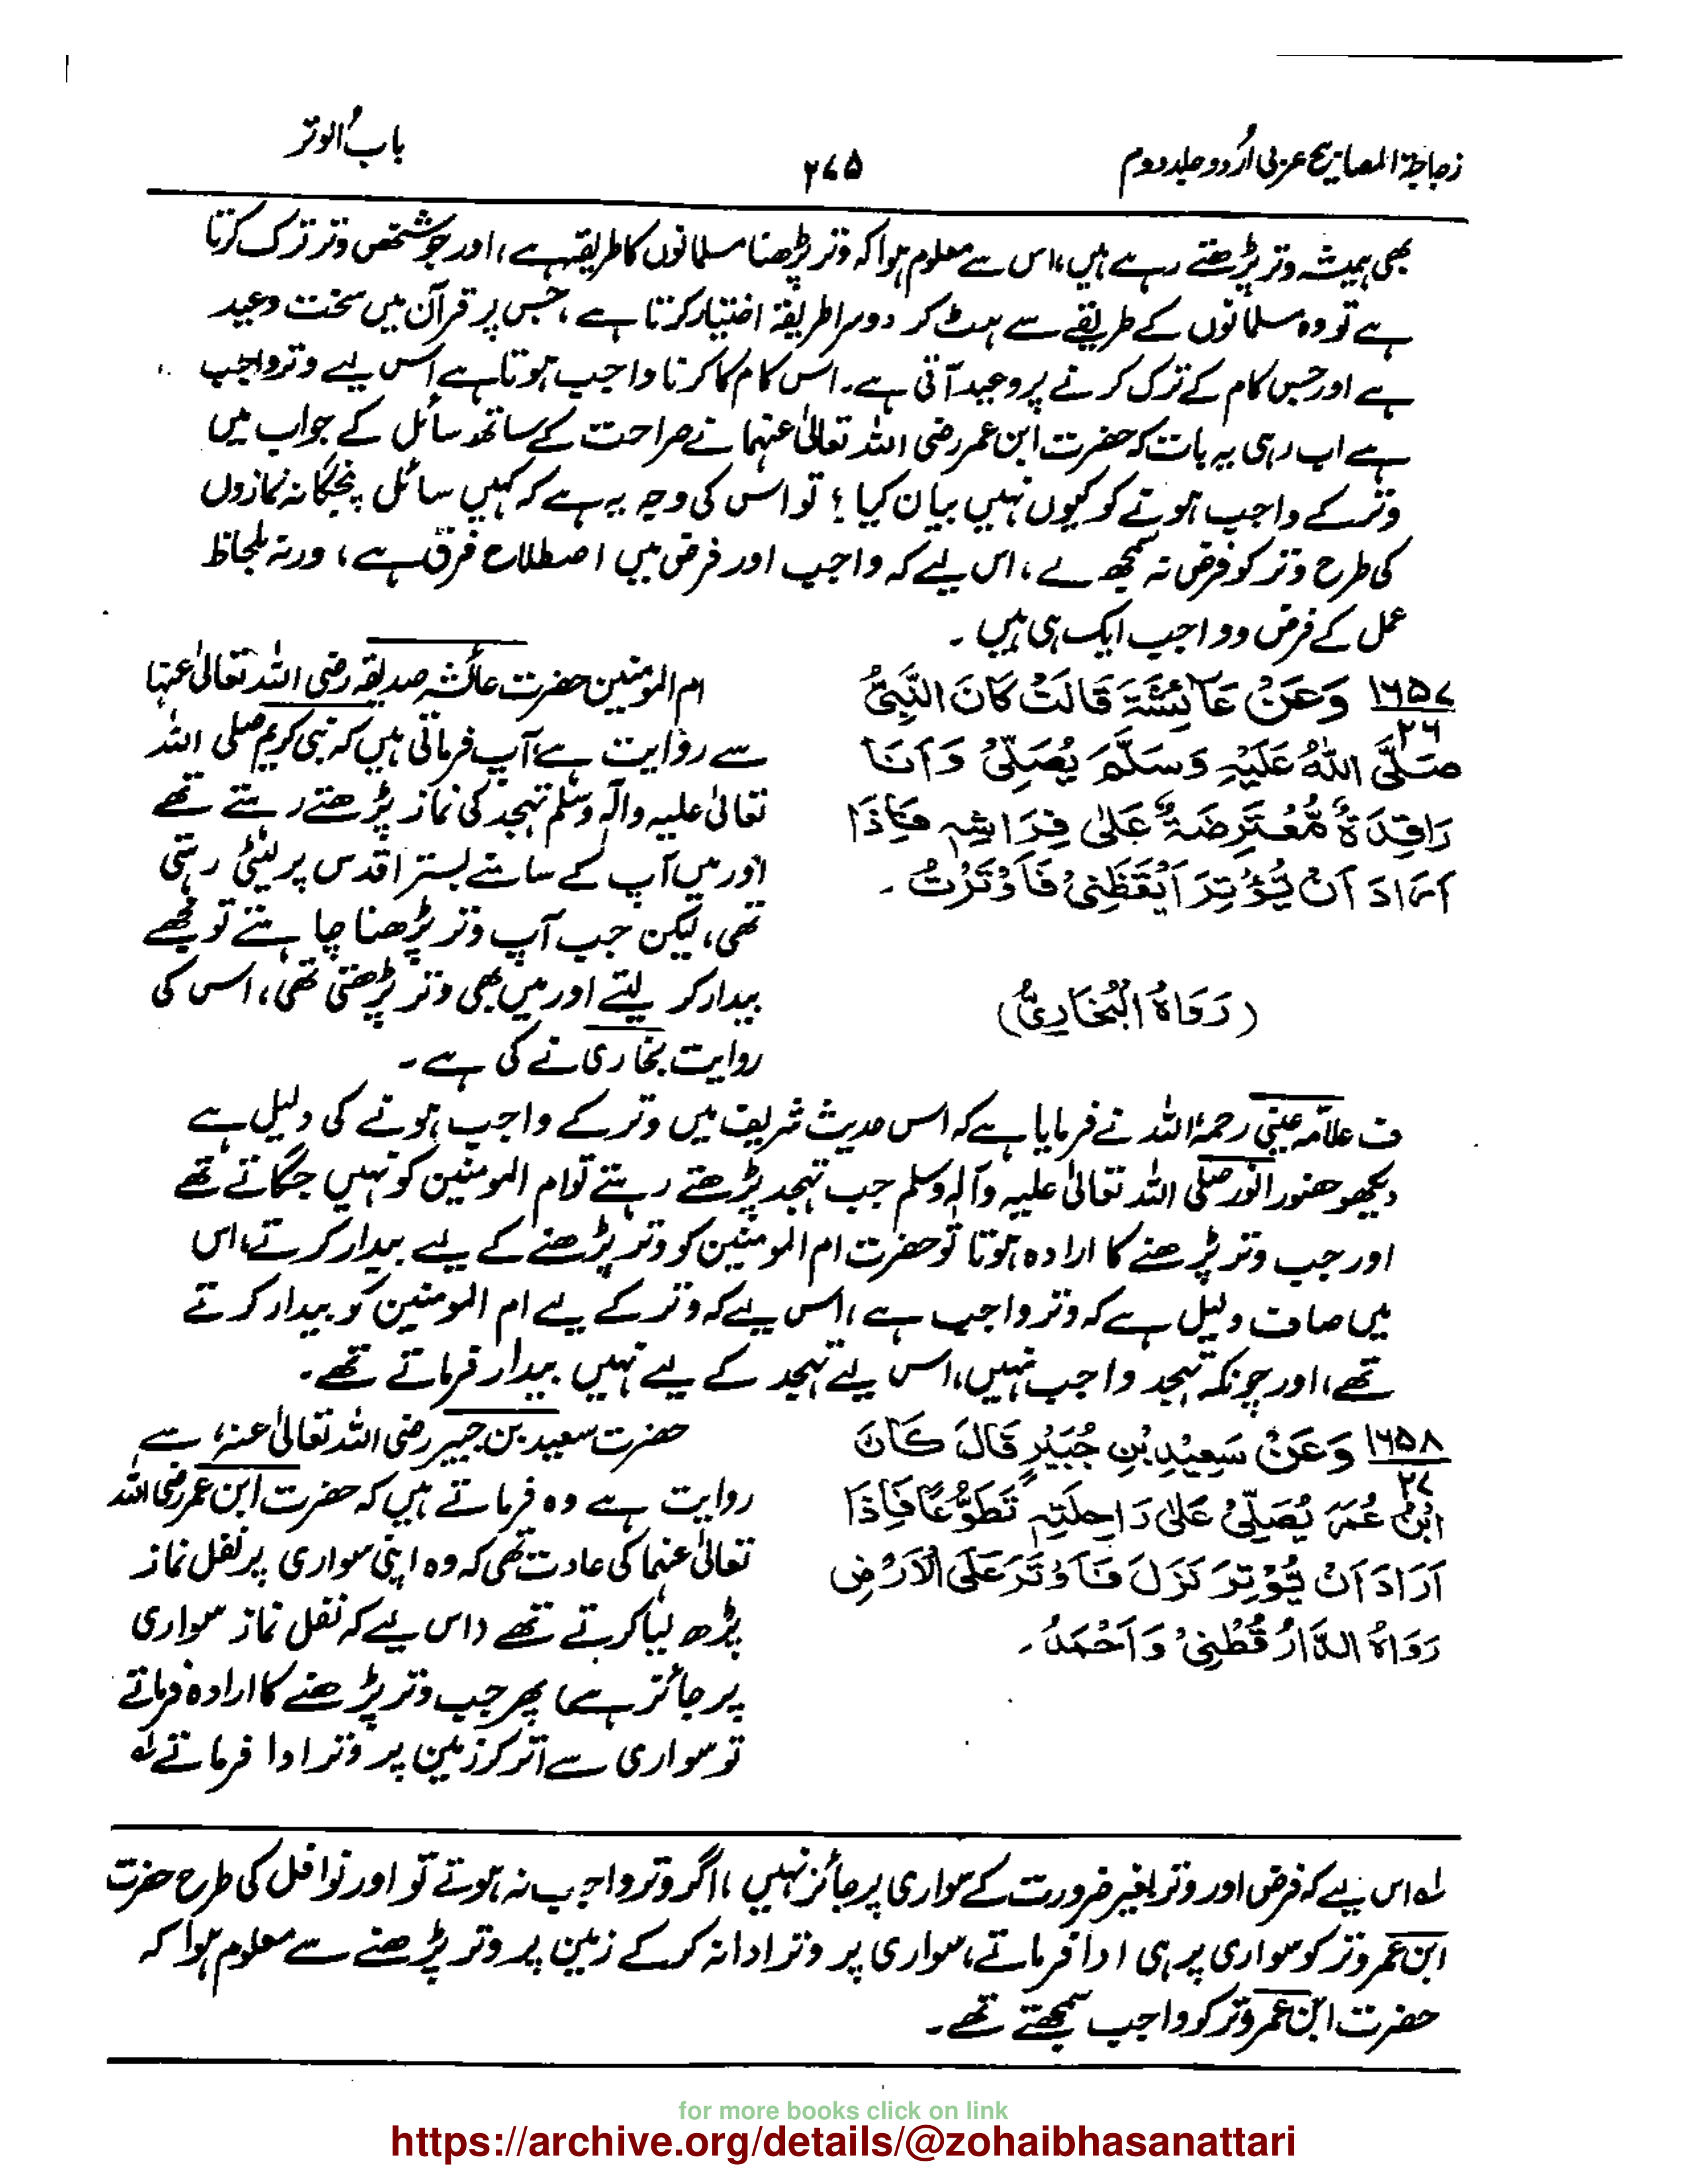 زجاجۃ المصابیح عربی اردو جلد دوم
۲۷۵
باب الوتر
بھی ہمیشہ وتر پڑھتے رہے ہیں، اس سے معلوم ہوا کہ وتر پڑھنا مسلمانوں کا طریقہ ہے، اور جو شخص وتر ترک کرتا
ہے تو وہ مسلمانوں کے طریقے سے ہٹ کر دوسرا طریقہ اختیار کرتا ہے، جس پر قرآن میں سخت وعید
ہے اور جس کام کے ترک کرنے پر وعید آتی ہے۔ اس کام کا کرنا واجب ہوتا ہے اس لیے وتر واجب
ہے اب رہی یہ بات کہ حضرت ابن عمر رضی اللہ تعالیٰ عنہما نے صراحت کے ساتھ سائل کے جواب میں
وتر کے واجب ہونے کو کیوں نہیں بیان کیا؟ تو اس کی وجہ یہ ہے کہ کہیں سائل پنجگانہ نمازوں
کی طرح وتر کو فرض نہ سمجھ لے، اس لیے کہ واجب اور فرض میں اصطلاح فرق ہے، ورنہ بلحاظ
عمل کے فرض وواجب ایک ہی ہیں۔
۱۶۵۷/۲۶ وَعَنْ عَائِشَةَ قَالَتْ كَانَ النَّبِيُّ
صَلَّى اللهُ عَلَيْهِ وَسَلَّمَ يُصَلِّيْ وَاَنَا
رَاقِدَةٌ مُّعْتَرِضَةٌ عَلٰى فِرَاشِهٖ فَاِذَا
اَرَادَ اَنْ يُّوْتِرَ اَيْقَظَنِيْ فَاَوْتَرْتُ۔
(رَوَاهُ الْبُخَارِيُّ)
ام المومنین حضرت عائشہ صدیقہ رضی اللہ تعالیٰ عنہا
سے روایت ہے آپ فرماتی ہیں کہ نبی کریم صلی اللہ
تعالیٰ علیہ وآلہٖ وسلم تہجد کی نماز پڑھتے رہتے تھے
اور میں آپ کے سامنے بستر اقدس پر لیٹی رہتی
تھی، لیکن جب آپ وتر پڑھنا چاہتے تو مجھے
بیدار کر لیتے اور میں بھی وتر پڑھتی تھی، اس کی
روایت بخاری نے کی ہے۔
ف علامہ عینی رحمۃ اللہ نے فرمایا ہے کہ اس حدیث شریف میں وتر کے واجب ہونے کی دلیل ہے
دیکھو حضور انور صلی اللہ تعالیٰ علیہ وآلہٖ وسلم جب تہجد پڑھتے رہتے تو ام المومنین کو نہیں جگاتے تھے
اور جب وتر پڑھنے کا ارادہ ہوتا تو حضرت ام المومنین کو وتر پڑھنے کے لیے بیدار کرتے، اس
میں صاف دلیل ہے کہ وتر واجب ہے، اس لیے کہ وتر کے لیے ام المومنین کو بیدار کرتے
تھے، اور چونکہ تہجد واجب نہیں، اس لیے تہجد کے لیے نہیں بیدار فرماتے تھے۔
۱۶۵۸/۲۷ وَعَنْ سَعِيْدِ بْنِ جُبَيْرٍ قَالَ كَانَ
ابْنُ عُمَرَ يُصَلِّيْ عَلٰى رَاحِلَتِهٖ تَطَوُّعًا فَاِذَا
اَرَادَ اَنْ يُّوْتِرَ نَزَلَ فَاَوْتَرَ عَلَى الْاَرْضِ
رَوَاهُ الدَّارُ قُطْنِيْ وَاَحْمَدُ۔
حضرت سعید بن جبیر رضی اللہ تعالیٰ عنہ، سے
روایت ہے وہ فرماتے ہیں کہ حضرت ابن عمر رضی اللہ
تعالیٰ عنہما کی عادت تھی کہ وہ اپنی سواری پر نفل نماز
پڑھ لیا کرتے تھے (اس لیے کہ نفل نماز سواری
پر جائز ہے) پھر جب وتر پڑھنے کا ارادہ فرماتے
تو سواری سے اتر کر زمین پر وتر ادا فرماتے لہ
لہ اس لیے کہ فرض اور وتر بغیر ضرورت کے سواری پر جائز نہیں، اگر وتر واجب نہ ہوتے تو اور نوافل کی طرح حضرت
ابن عمر وتر کو سواری پر ہی ادا فرماتے، سواری پر وتر ادا نہ کر کے زمین پر وتر پڑھنے سے معلوم ہوا کہ
حضرت ابن عمر وتر کو واجب سمجھتے تھے۔
for more books click on link
https://archive.org/details/@zohaibhasanattari